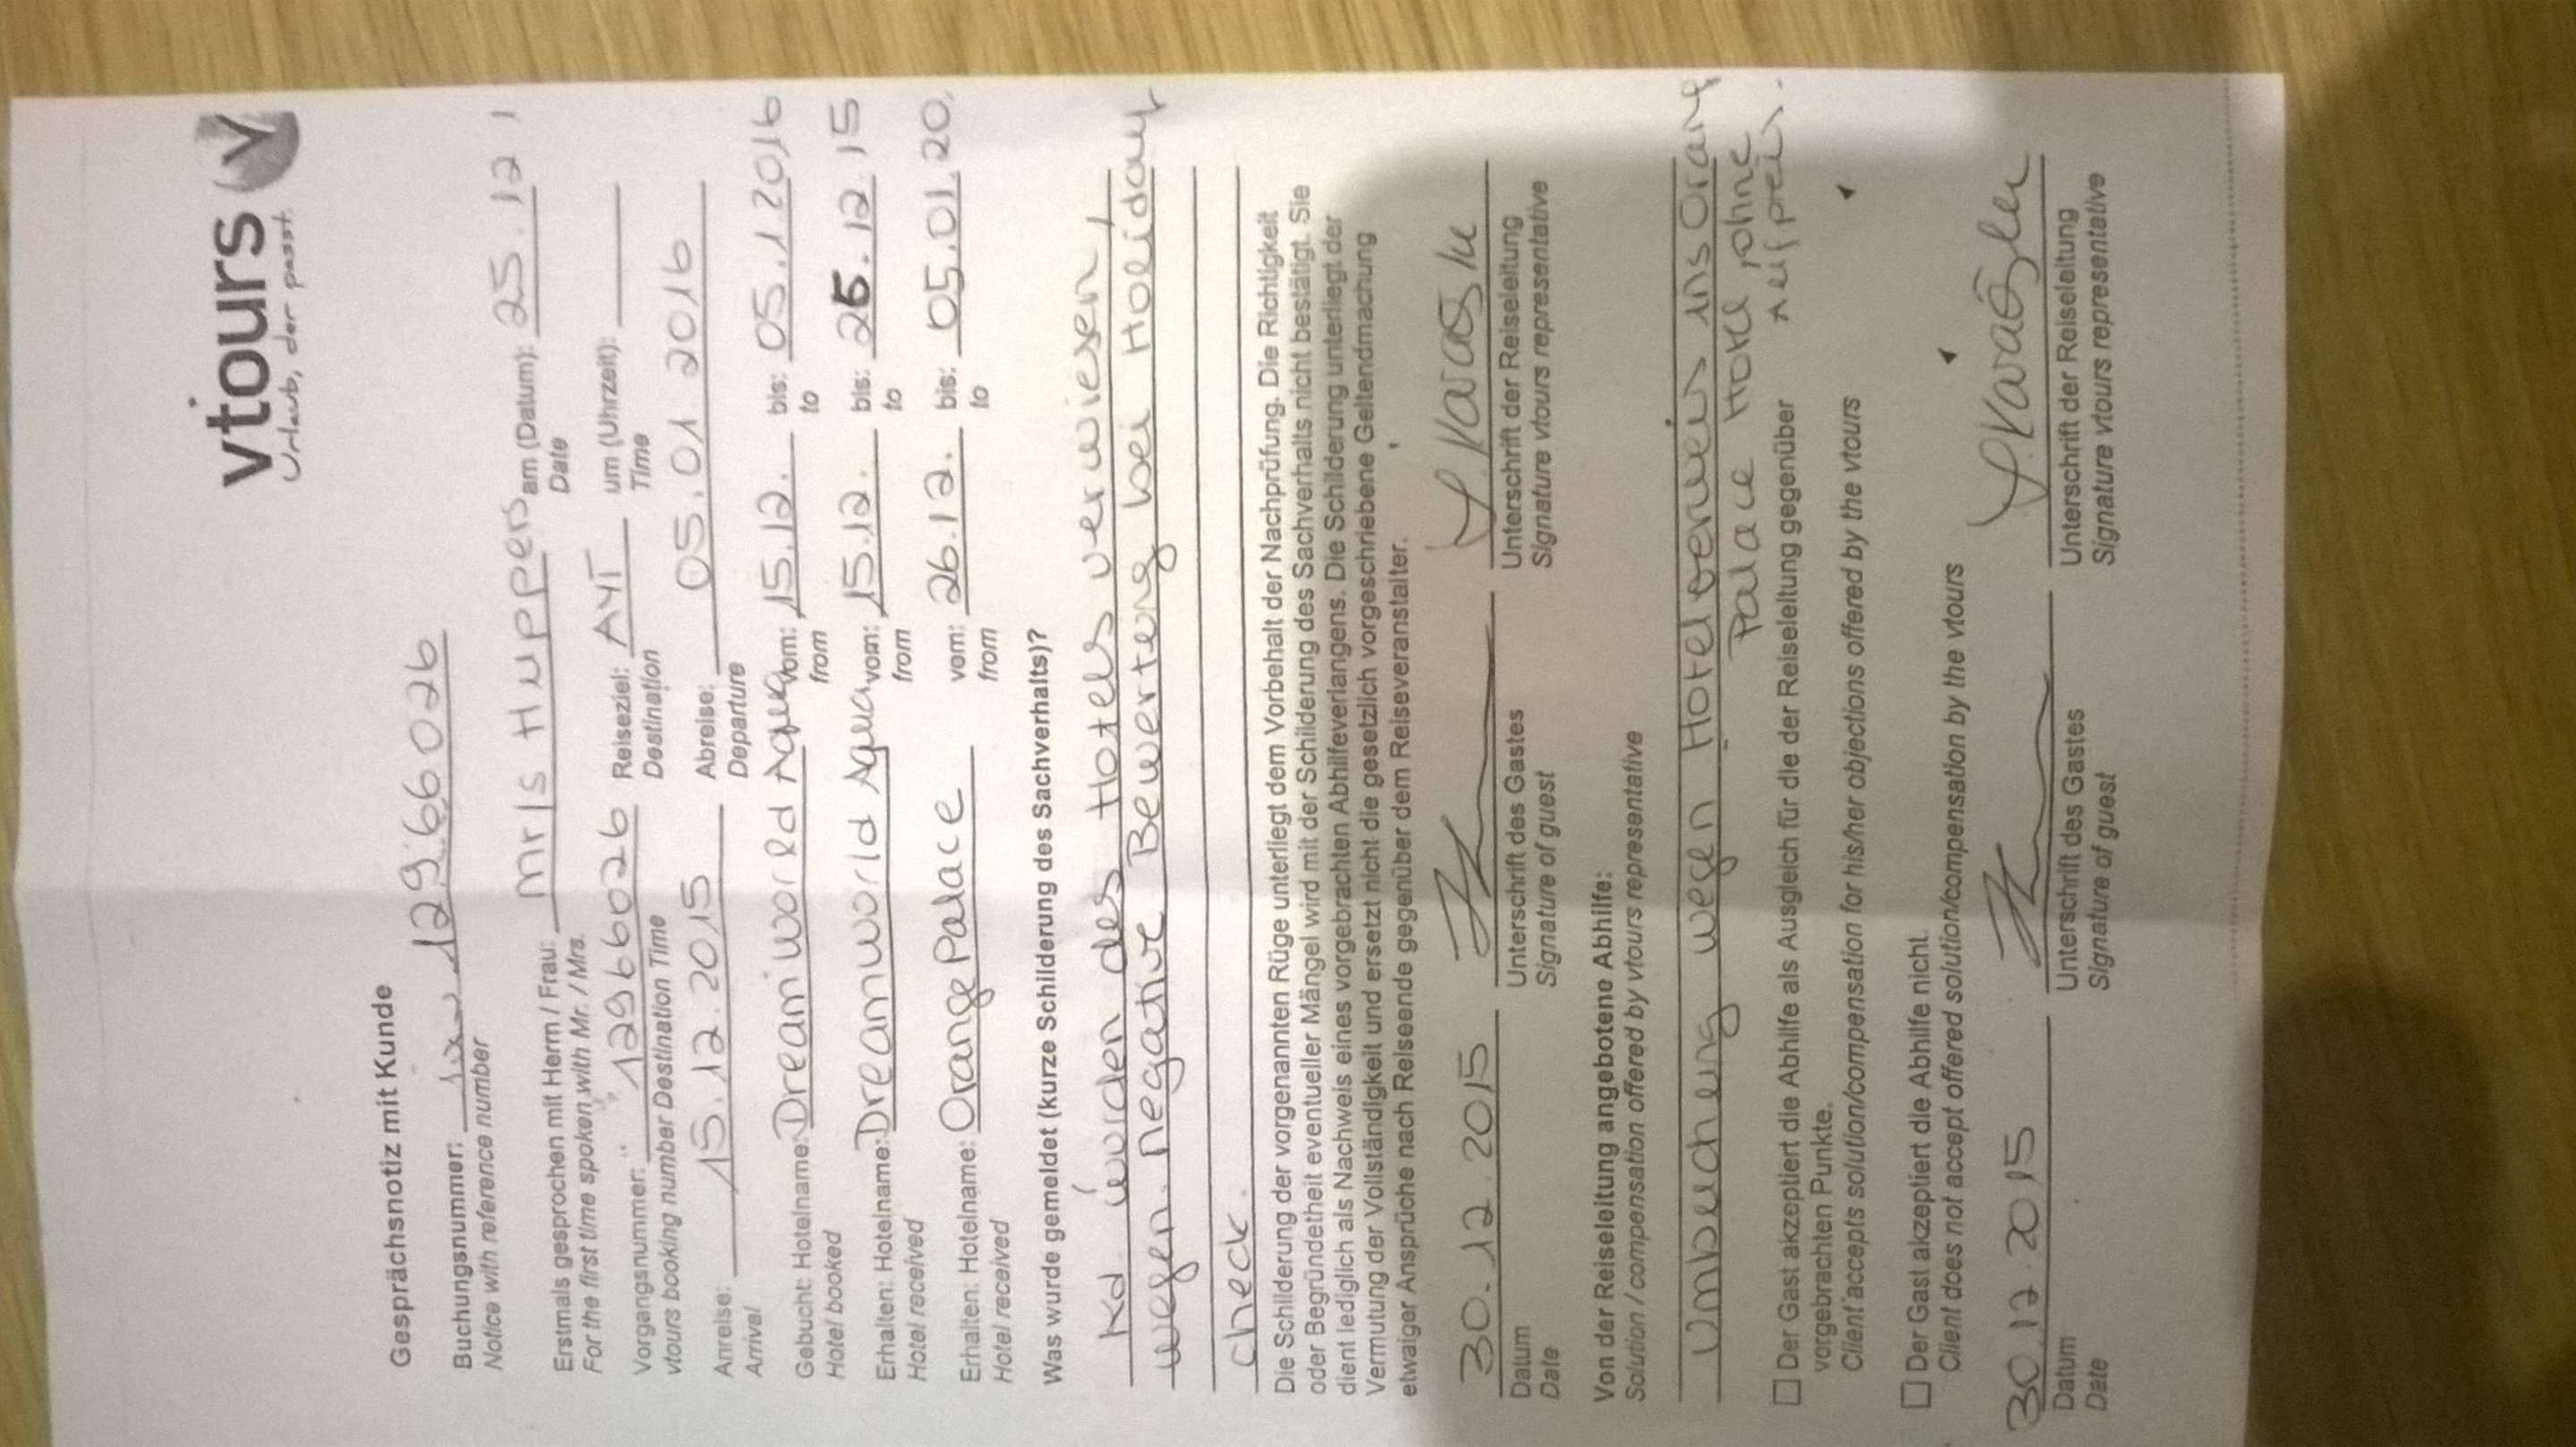 vtours
Urlaub, der passt.
Gesprächsnotiz mit Kunde
Buchungsnummer: 12966026
Notice with reference number
Erstmals gesprochen mit Herrn / Frau: Mrls Huppers am (Datum): 25.12 1
For the first time spoken with Mr. / Mrs. Date
Vorgangsnummer: 12966026 Reiseziel: AYT um (Uhrzeit):
vtours booking number Destination Time Destination Time
Anreise: 15.12.2015 Abreise: 05.01 2016
Arrival Departure
Gebucht: Hotelname: Dreamworld Aqua vom: 15.12. bis: 05.1 2016
Hotel booked from to
Erhalten: Hotelname: Dreamworld Aqua vom: 15.12. bis: 26.12.15
Hotel received from to
Erhalten: Hotelname: Orange Palace vom: 26.12. bis: 05.01.20.
Hotel received from to
Was wurde gemeldet (kurze Schilderung des Sachverhalts)?
Kd wurden des Hotels verwiesen,
wegen negative Bewertung bei Holiday
check.
Die Schilderung der vorgenannten Rüge unterliegt dem Vorbehalt der Nachprüfung. Die Richtigkeit
oder Begründetheit eventueller Mängel wird mit der Schilderung des Sachverhalts nicht bestätigt. Sie
dient lediglich als Nachweis eines vorgebrachten Abhilfeverlangens. Die Schilderung unterliegt der
Vermutung der Vollständigkeit und ersetzt nicht die gesetzlich vorgeschriebene Geltendmachung
etwaiger Ansprüche nach Reiseende gegenüber dem Reiseveranstalter.
30.12.2015
Datum Unterschrift des Gastes Unterschrift der Reiseleitung
Date Signature of guest Signature vtours representative
Von der Reiseleitung angebotene Abhilfe:
Solution / compensation offered by vtours representative
Umbuchung wegen Hotelverweis ins Orang
Palace Hotel, ohne
Aufpreis.
Der Gast akzeptiert die Abhilfe als Ausgleich für die der Reiseleitung gegenüber
vorgebrachten Punkte.
Client accepts solution/compensation for his/her objections offered by the vtours
Der Gast akzeptiert die Abhilfe nicht.
Client does not accept offered solution/compensation by the vtours
30.12.2015
Datum Unterschrift des Gastes Unterschrift der Reiseleitung
Date Signature of guest Signature vtours representative